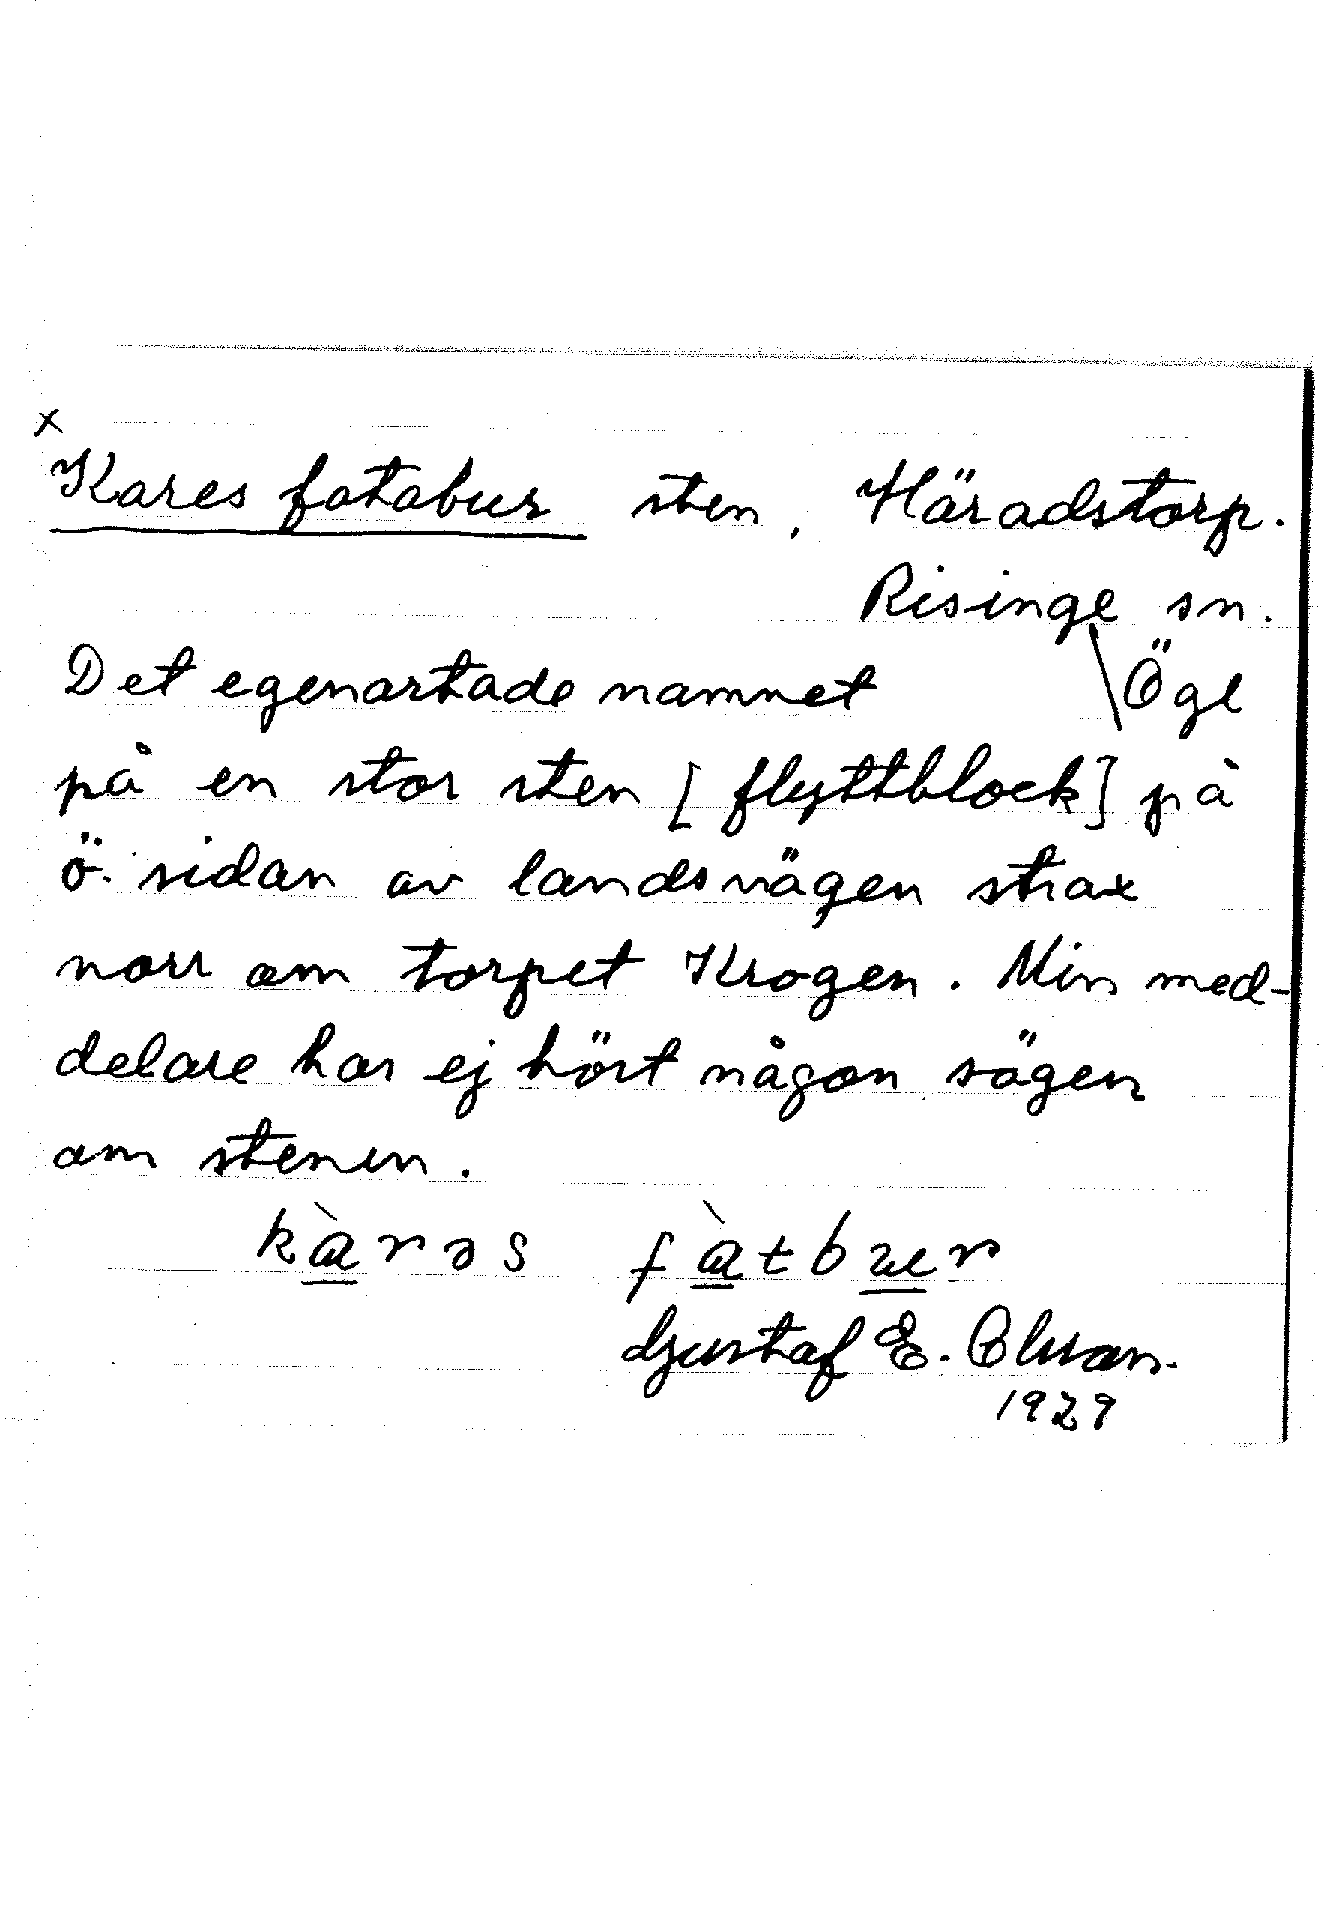 x
Kares fatabur sten, Häradstorp.
Risinge sn.
Det egenartade namnet Ögl
på en stor sten [flyttblock] på
ö. sidan av landsvägen strax
norr om torpet Krogen. Min med-
delare har ej hört någon sägen
om stenen.
kàrəs fàtbur
Gustaf E. Olsson.
1929